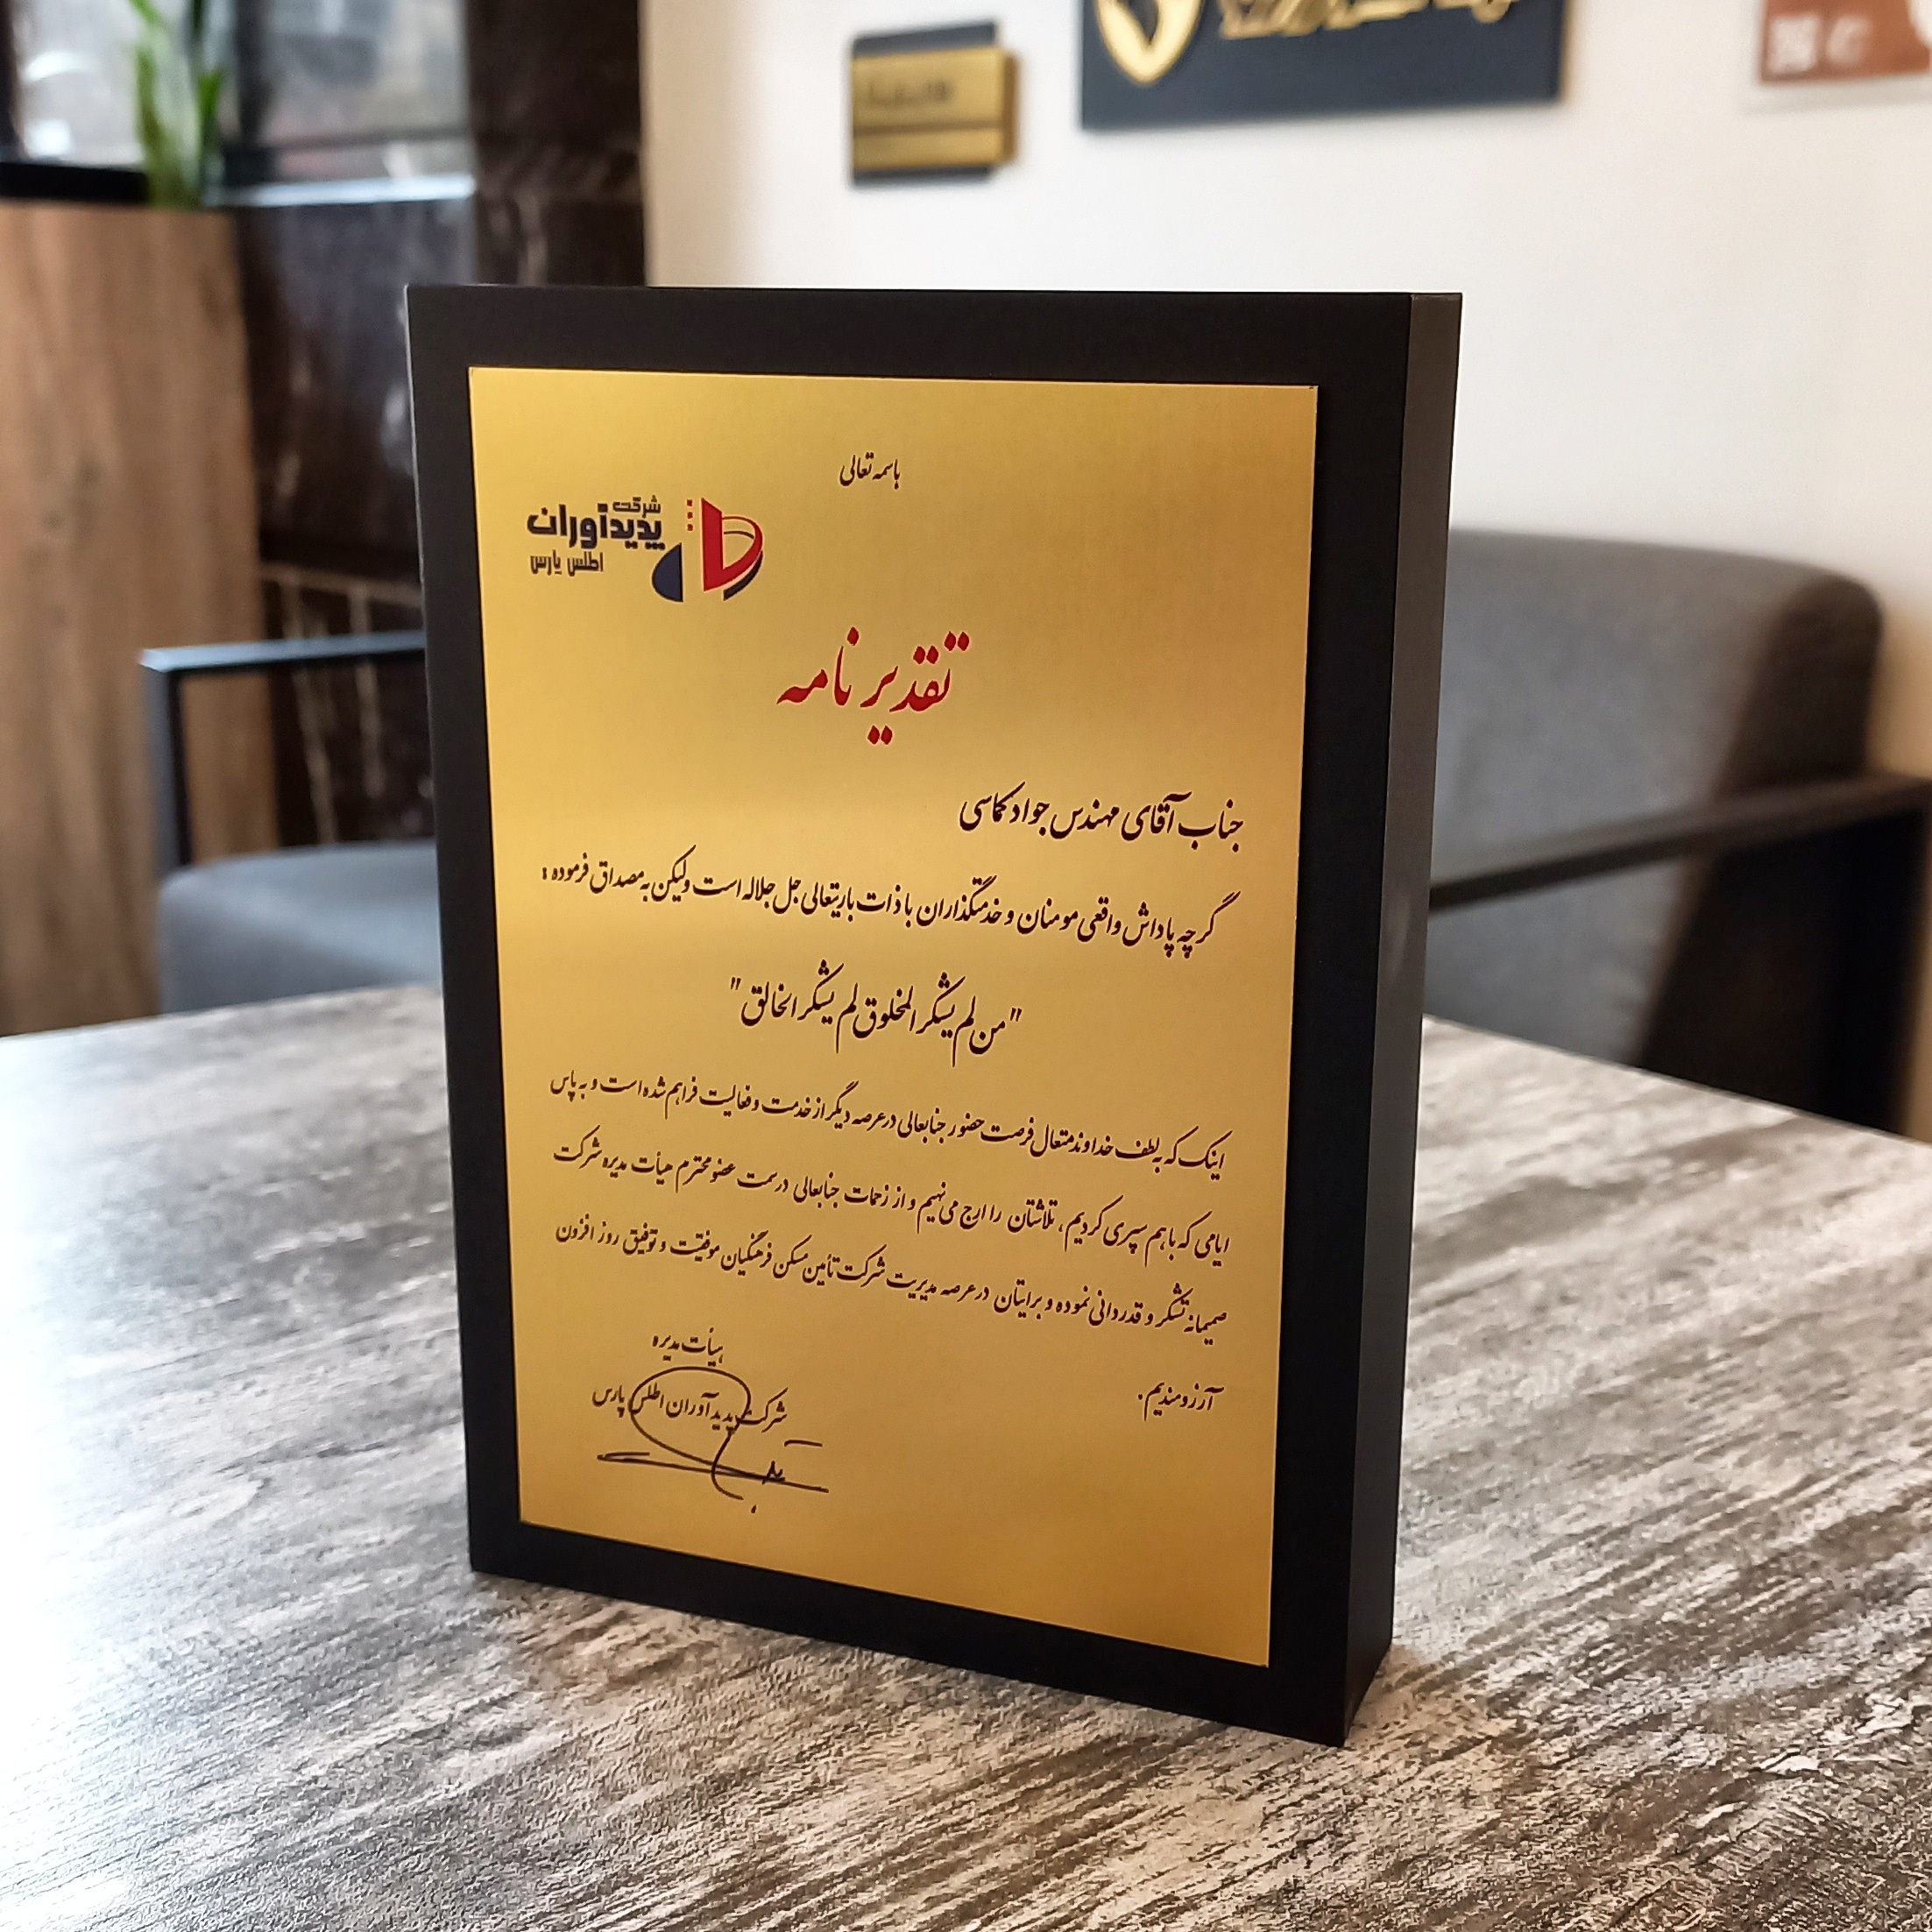 باسمه تعالی
شرکت
پدیدآوران
اطلس پارس
تقدیرنامه
جناب آقای مهندس جواد کماسی
گرچه پاداش واقعی مومنان و خدمتگذاران با ذات باریتعالی جل جلاله است ولیکن به مصداق فرموده :
"من لم یشکر المخلوق لم یشکر الخالق"
اینک که به لطف خداوند متعال فرصت حضور جنابعالی در عرصه دیگر از خدمت و فعالیت فراهم شده است و به پاس
ایامی که با هم سپری کردیم، تلاشتان را ارج می نهیم و از زحمات جنابعالی در سمت عضو محترم هیأت مدیره شرکت
صمیمانه تشکر و قدردانی نموده و برایتان در عرصه مدیریت شرکت تأمین مسکن فرهنگیان موفقیّت و توفیق روز افزون
آرزومندیم.
هیأت مدیره
شرکت پدیدآوران اطلس پارس